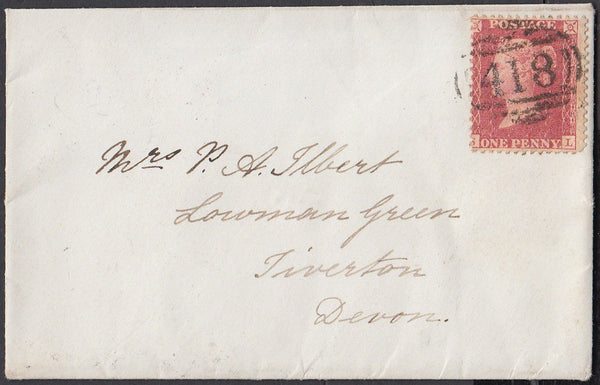 POSTAGE
418
ONE PENNY L
Mrs P. A. Ilbert
Lowman Green
Tiverton
Devon.